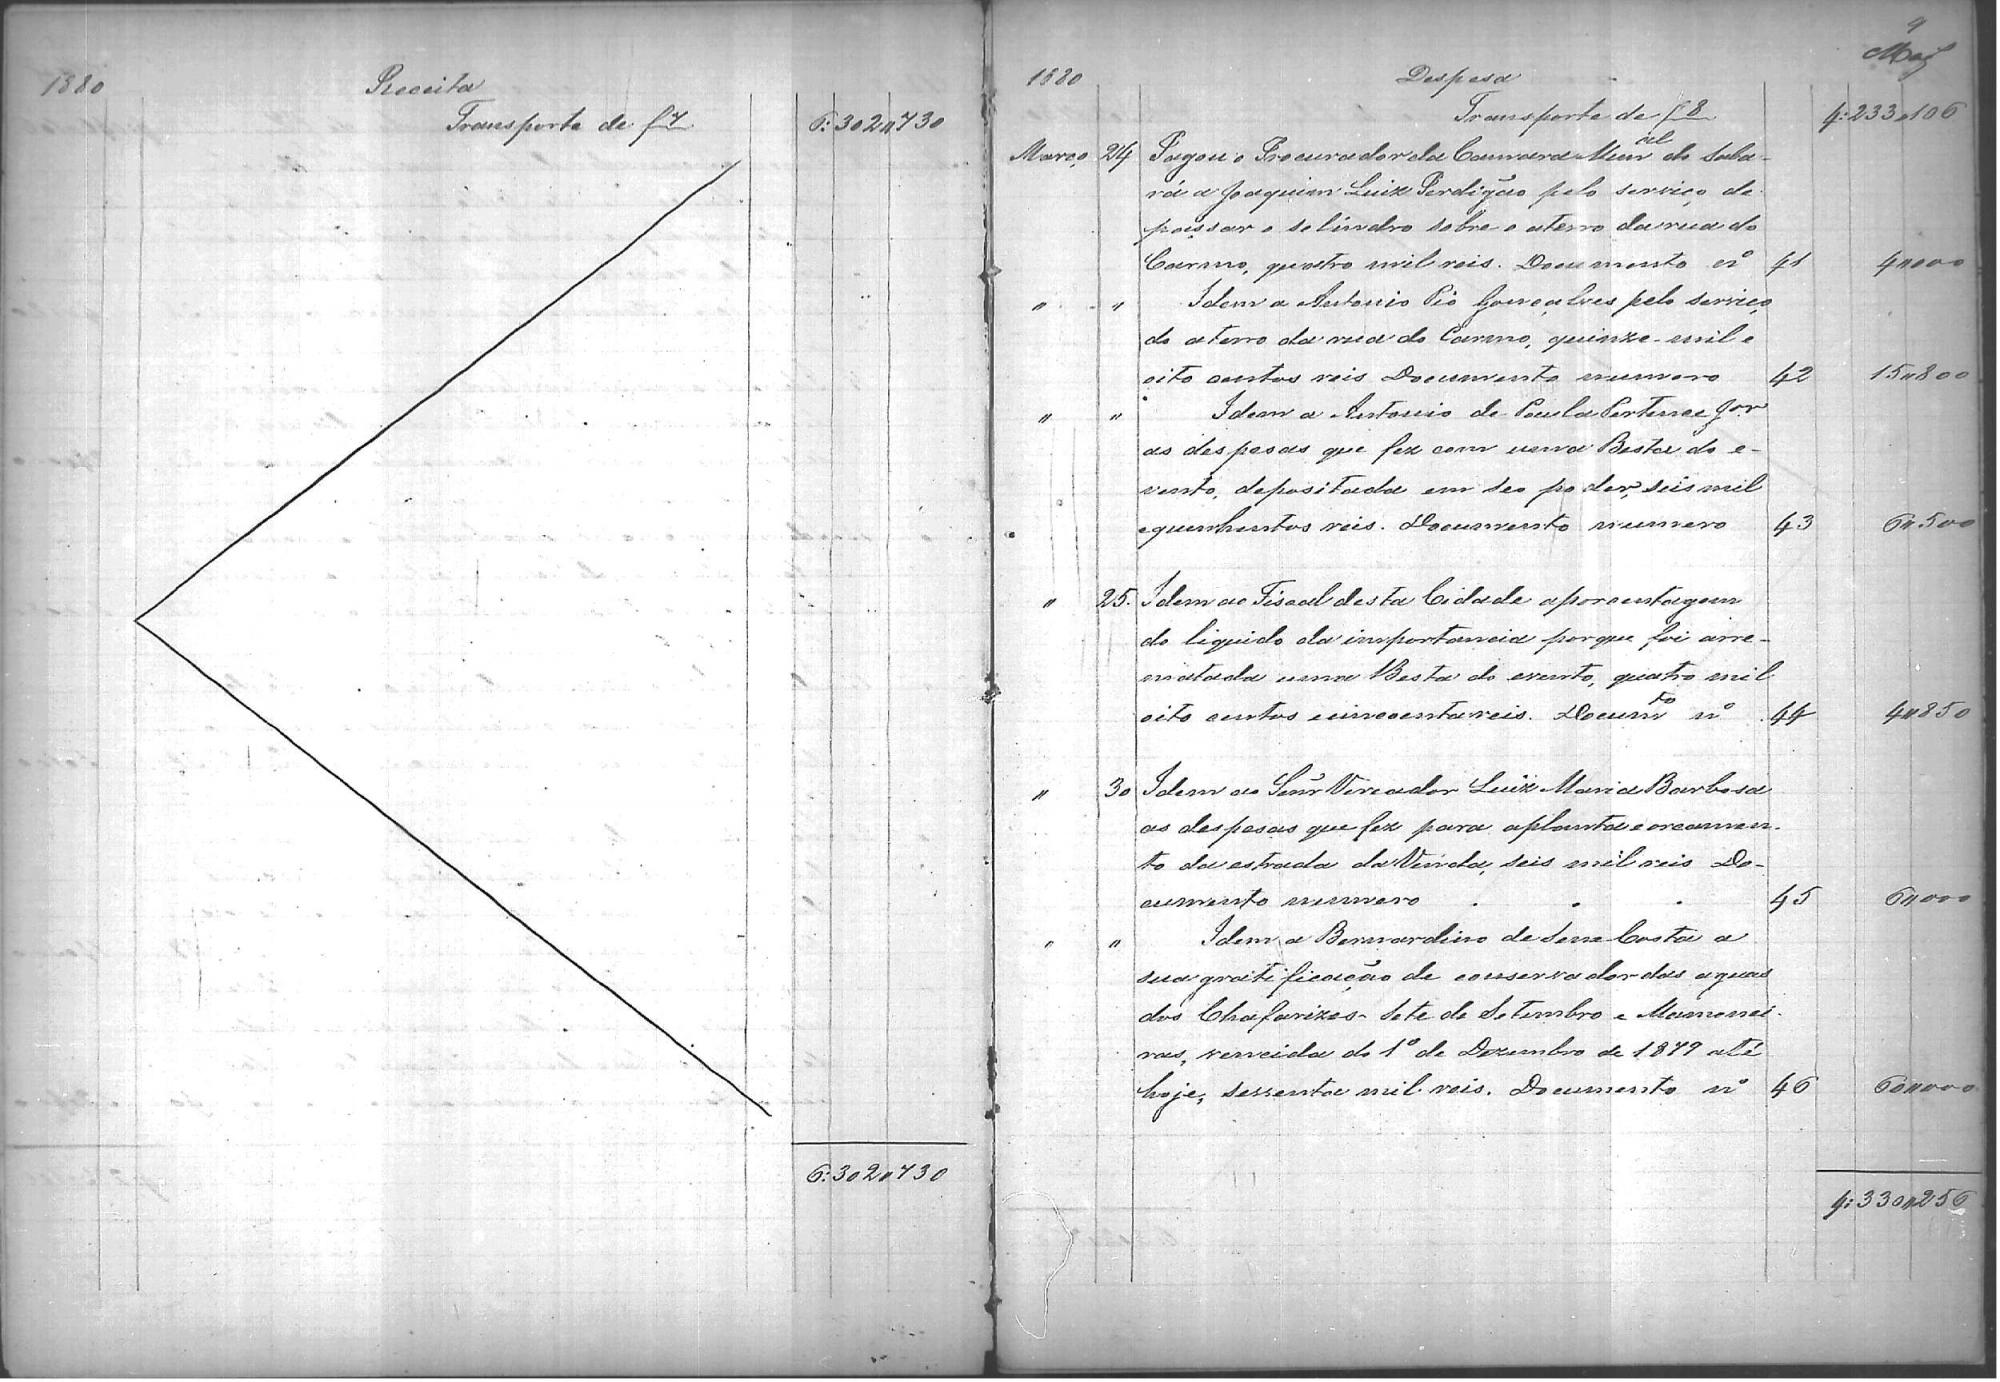 1880 Receita
Transporte de f 7 6:302"730
6:302"730
9
1880 Despesa
Transporte de f 8 4:233"106
Março 24 Pagou o Procurador da Camara Mun al de Saba-
rá a Joaquim Luiz Perdigão pelo serviço de
passar o selindro sobre o aterro da rua do
Carmo, quatro mil reis. Documento nº 41 4"000
" " Idem a Antonio Pio Gonçalves pelo serviço
do aterro da rua do Carmo, quinze mil e
oito centos reis Documento numero 42 15"800
" " Idem a Antonio de Paula Pertence por
as despesas que fez com uma Besta do e-
vento, depositada em seo poder, seis mil
e quinhentos reis. Documento numero 43 6"500
" 25. Idem ao Fiscal desta Cidade a porcentagem
do liquido da importancia porque foi arre-
matada uma Besta do evento, quatro mil
oito centos e cincoenta reis. Docum to nº 44 4"850
" 30 Idem ao Senr Vereador Luiz Maria Barbosa
as despesas que fez para a planta e orcamen-
to da estrada da Venda, seis mil reis Do-
cumento numero . . . 45 6"000
" " Idem a Bernardino de Sena Costa a
sua gratificação de conservador das aguas
dos Chafarizes - Sete de Setembro e Mamonei-
ras, vencida do 1º de Dezembro de 1879 até
hoje, sessenta mil reis. Documento nº 46 60"000
4:330"256